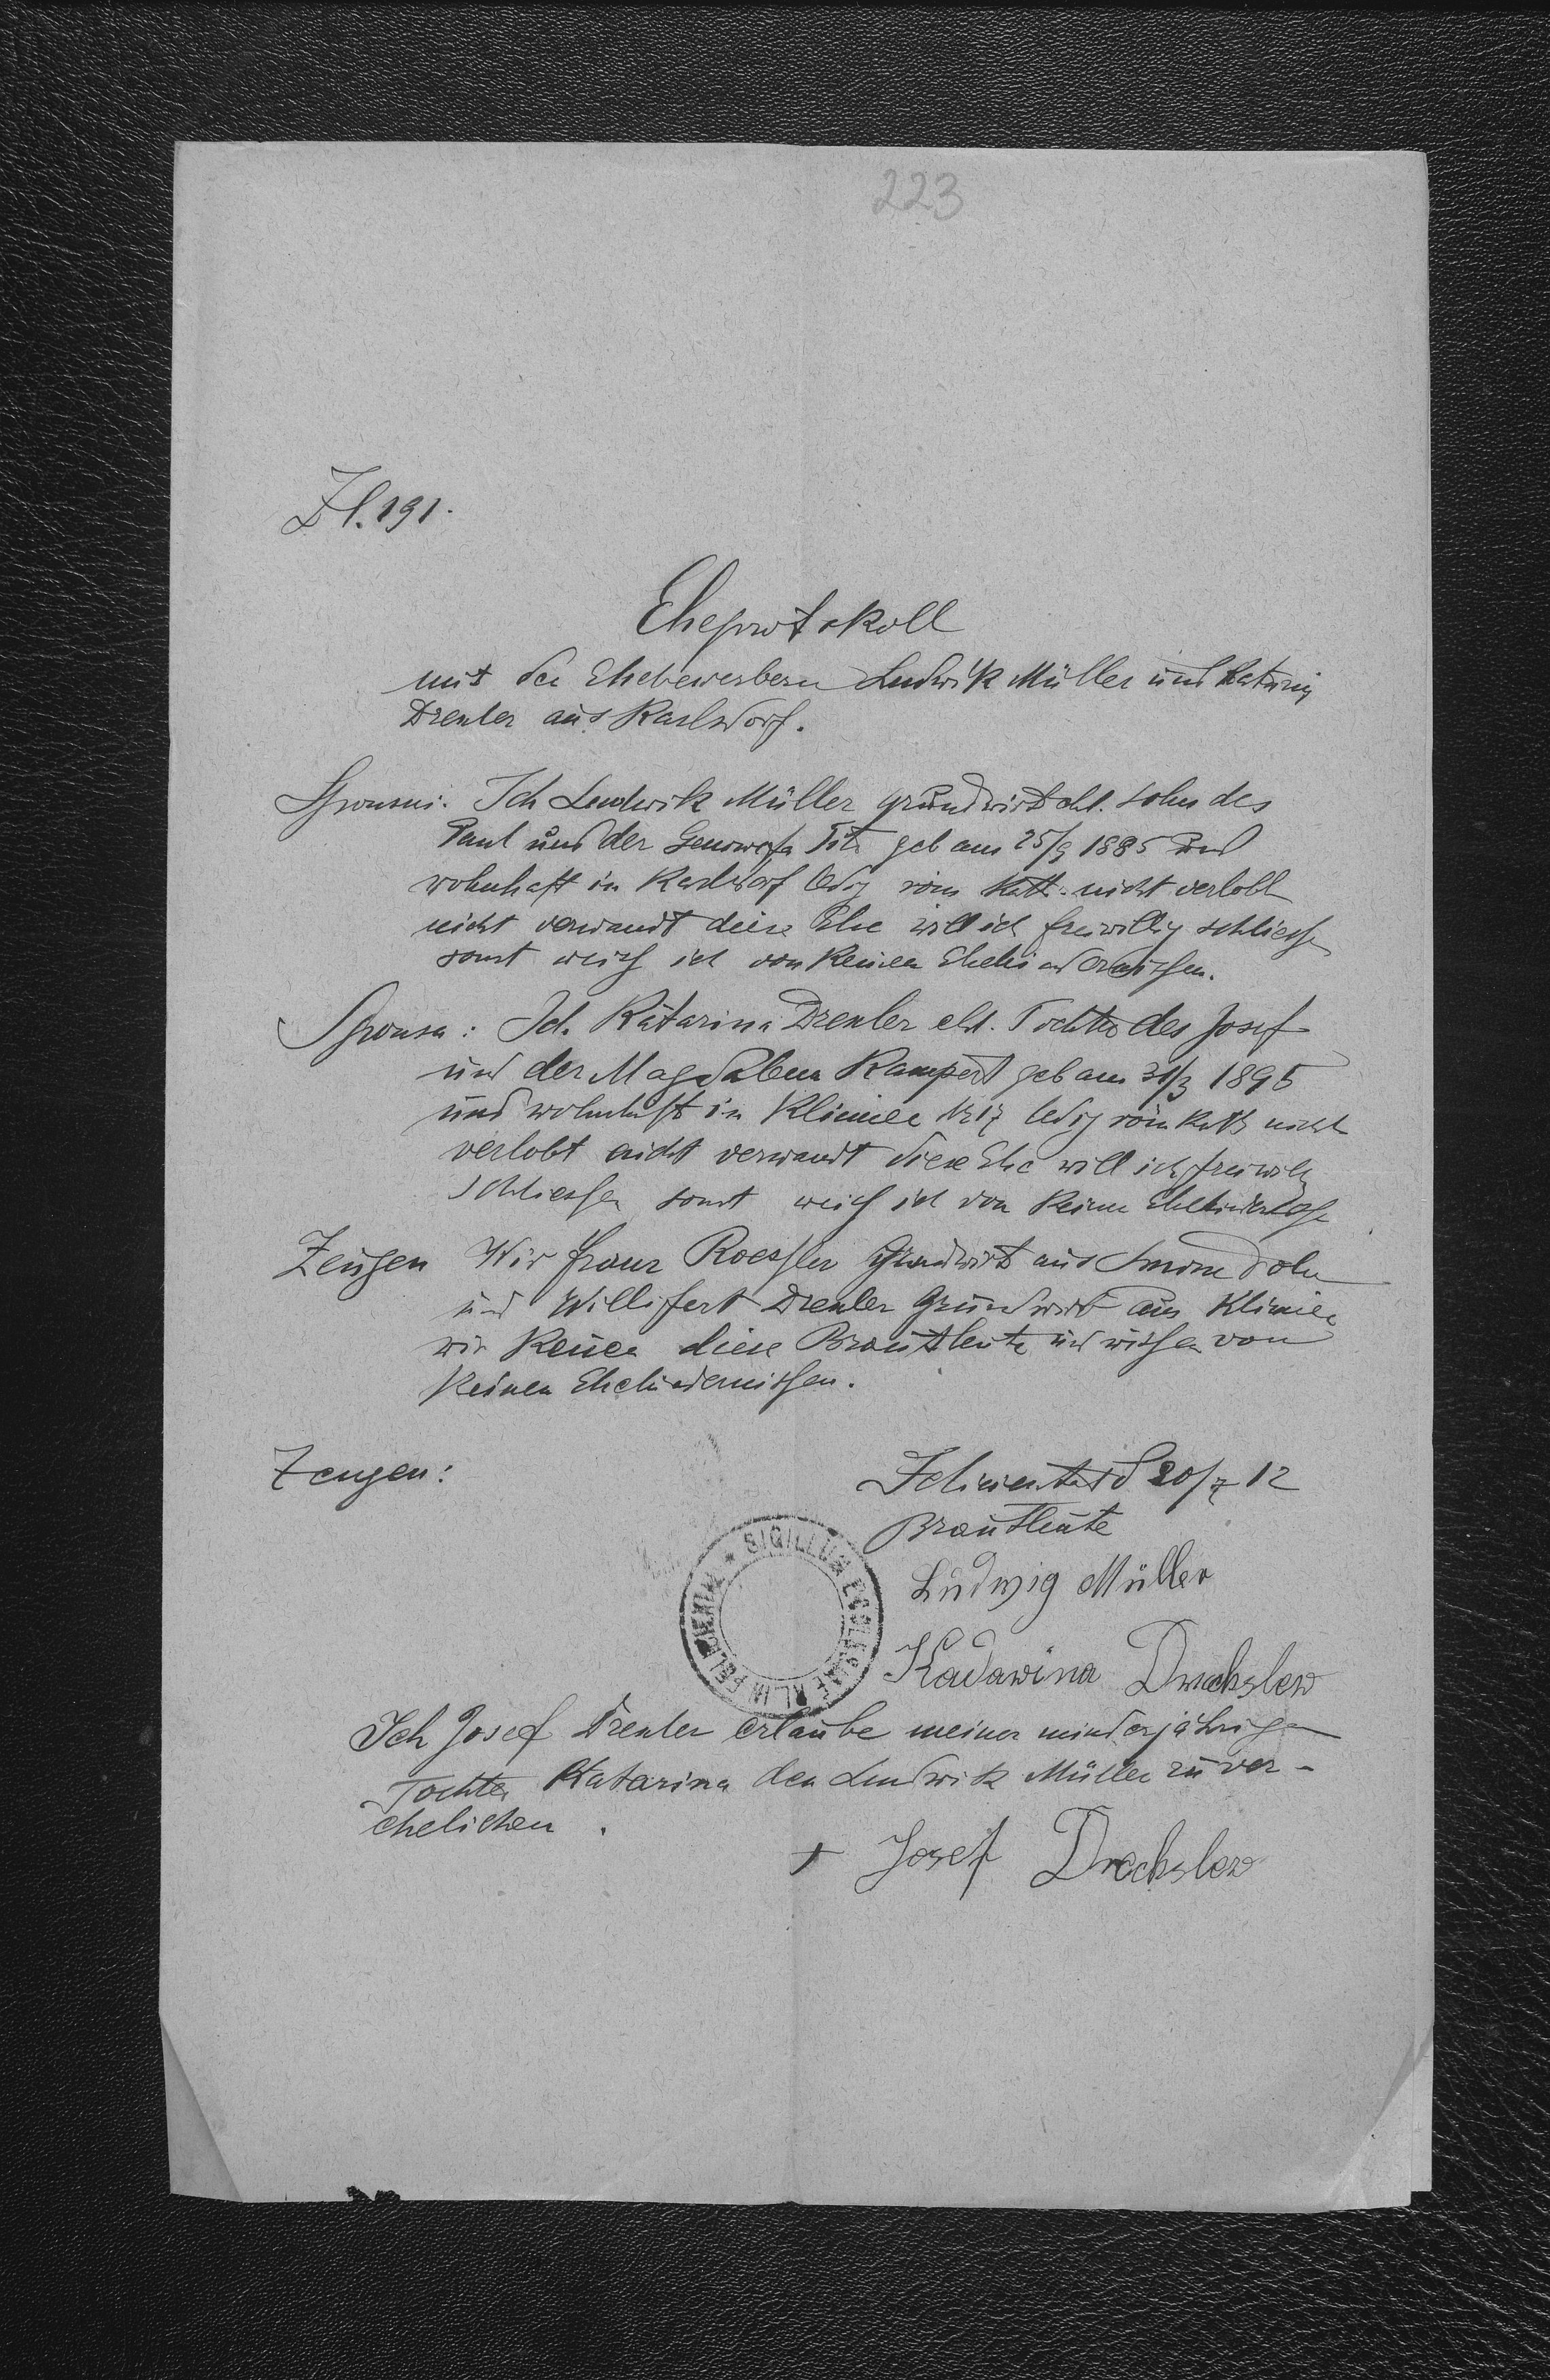 223
Zl. 191.
Eheprotokoll
mit den Ehebewerbern Ludwik Müller und Katarin
Drexler aus Karlsdorf.
Sponsus. Ich Ludwik Müller Grundwirt ehl. Sohn des
Paul und der Genowefa geb am 25/9 1885 und
wohnhaft in Karlsdorf ledig röm kath. nicht verlobt
nicht verwandt diese Ehe will ich freiwillig schliessen
sonst weiss ich von keinen Ehehindernissen.
Sponsa: Ich Katarina Drexler ehl. Tochter des Josef
und der Magdalena Kampert geb am 31/3 1895
und wohnhaft in Klimiec N 17 ledig röm kath nicht
verlobt nicht verwandt diese Ehe will ich freiwillig
schliessen sonst weiss ich von keinen
Zeugen Wir Franz Roessler Grundwirt aus
und Drexler Grundwirt aus Klimiec
wir kenen diese Brautleute und wissen von
keinen Ehehindernissen.
Zeugen:
20/7 12
Brautleute
Ludwig Müller
Kadarina Drechsler
SIGILLUM ECCLESIAE R.L. IN FELICIENTHAL
Ich Josef Drexler erlaube meiner minderjährigen
Tochter Katarina den Ludwik Müller zu ver-
ehelichen.
+ Josef Drechsler